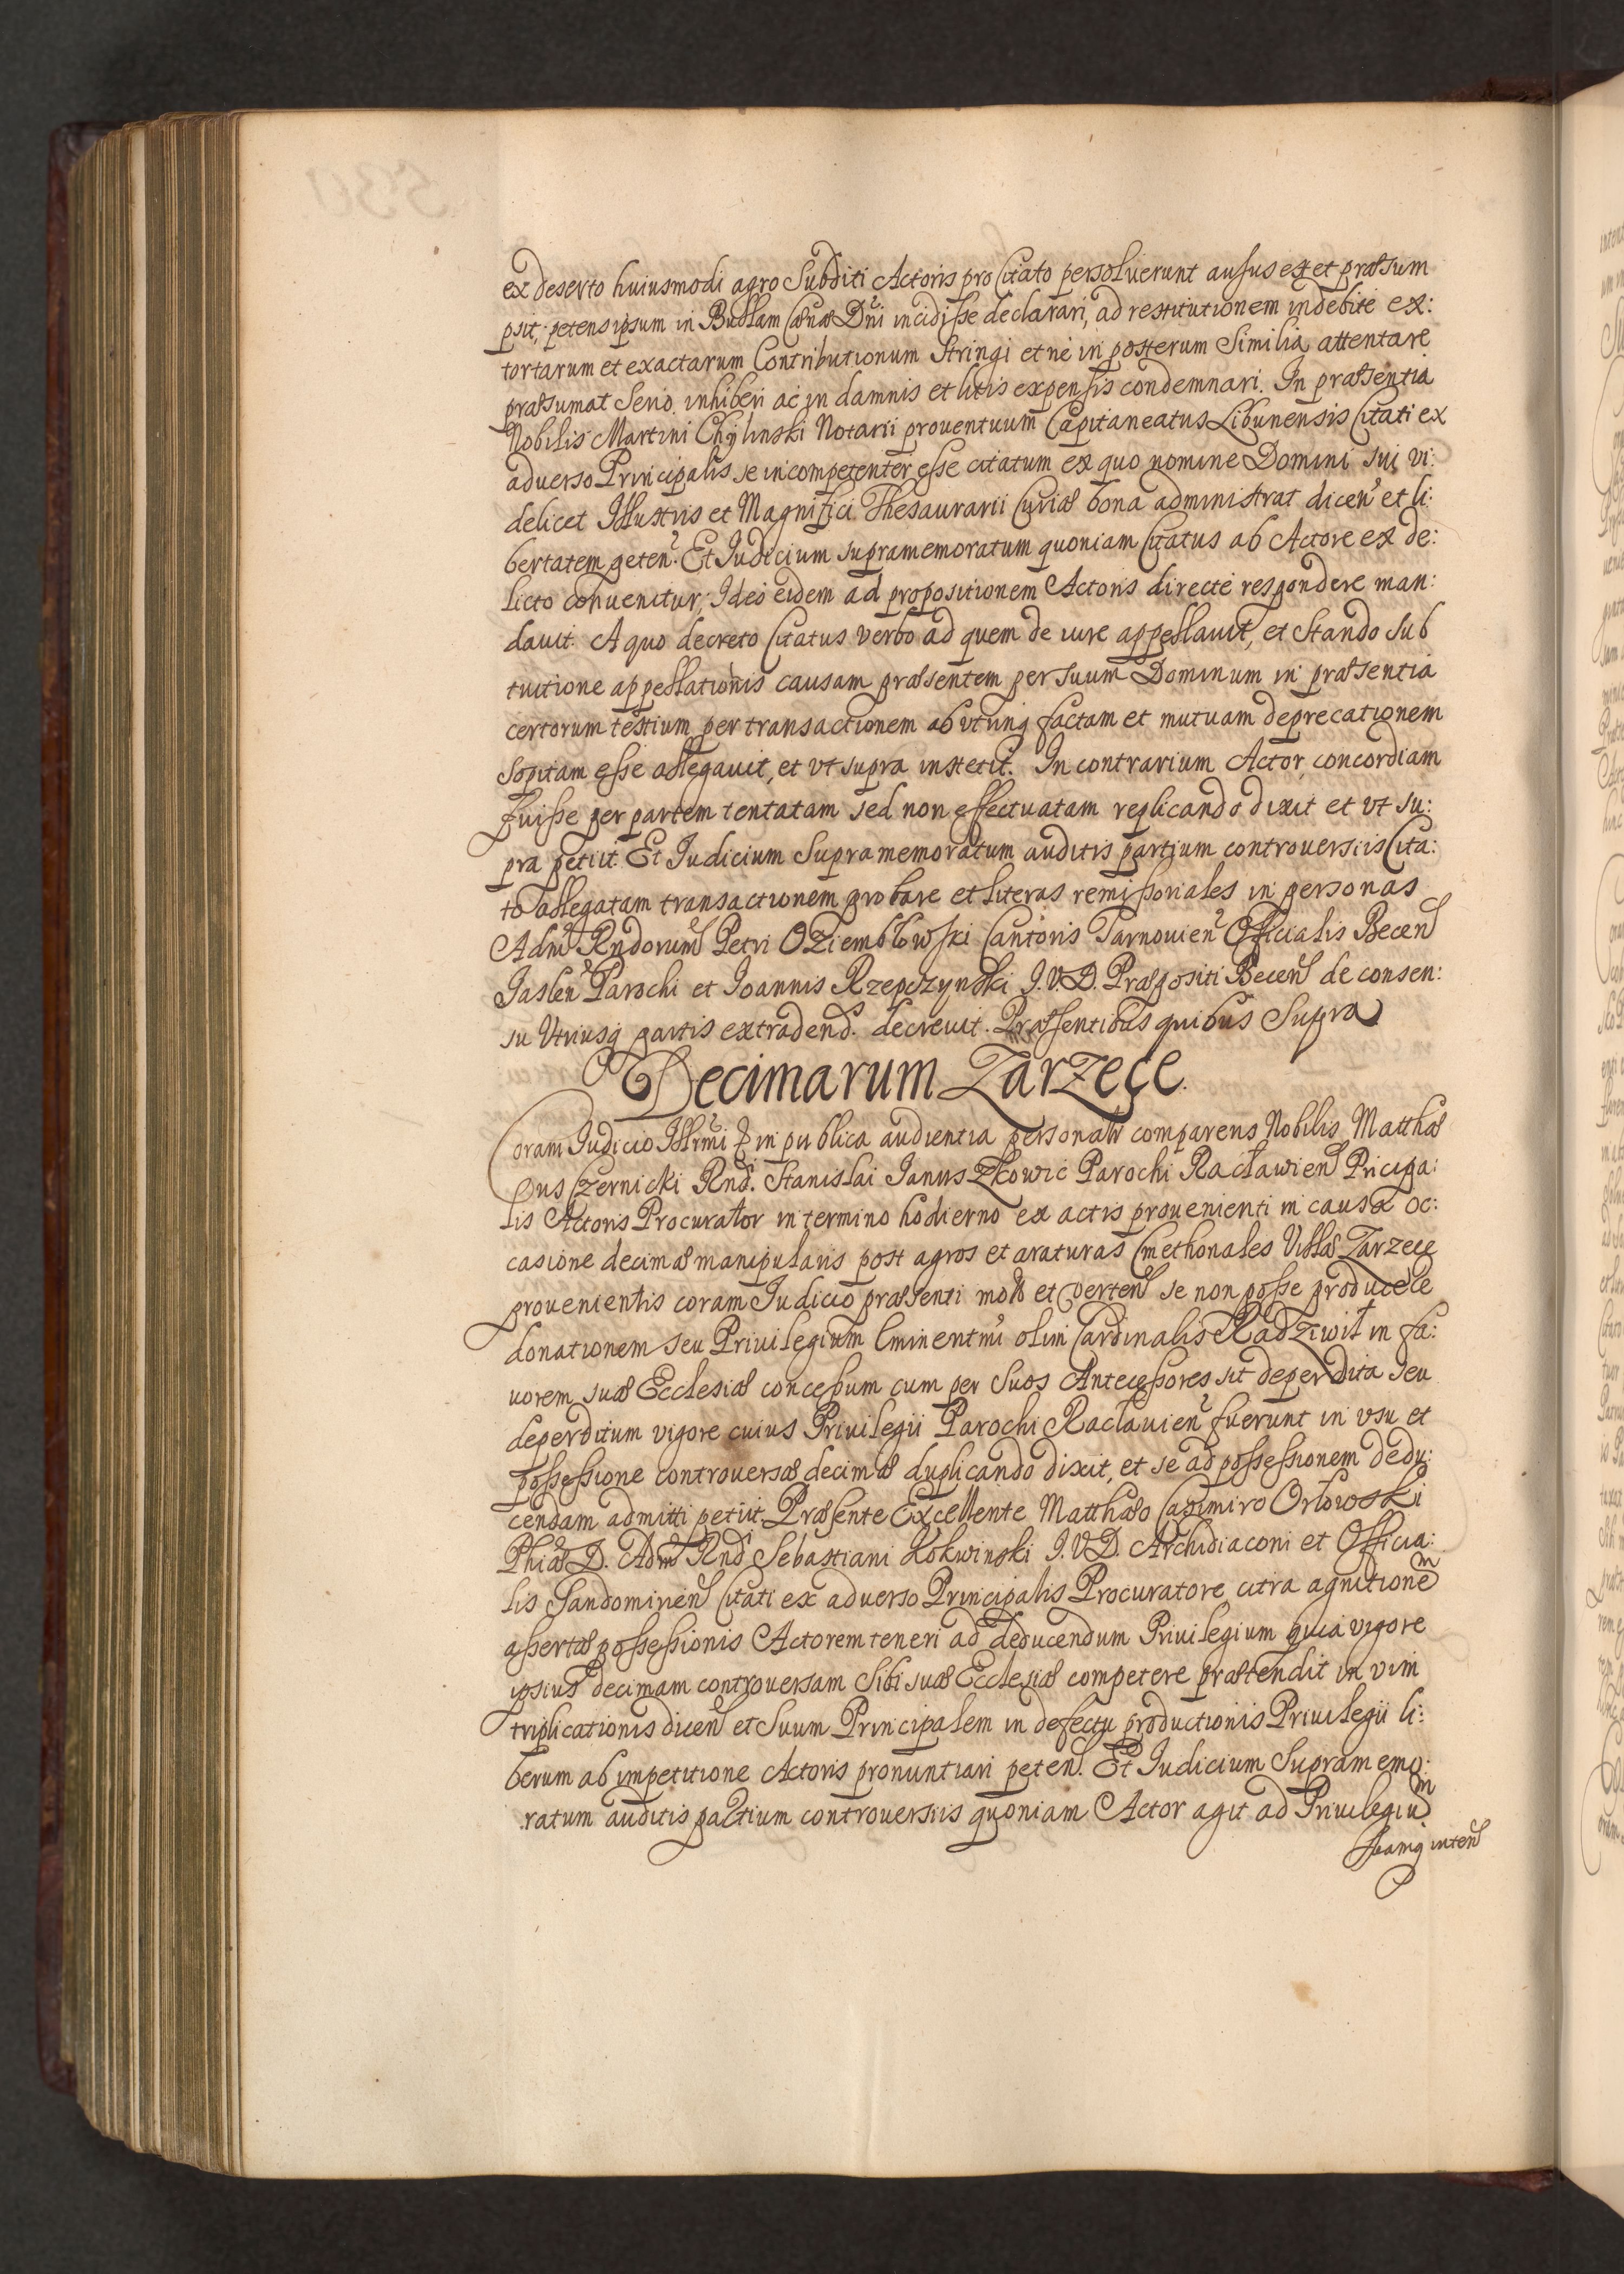 ex deserto huiusmodi agro Subditi Actoris pro Citato persoluerunt ausus est et præsum
psit, petens ipsum in Bullam Cænæ Dni incidisse declarari, ad restitutionem indebite ex:
tortarum et exactarum Contributionum Stringi et ne in posterum Similia attentare
præsumat Serio inhiberi ac in damnis et litis expensis condemnari. In præsentia
Nobilis Martini Chylinski Notarii prouentuum Capitaneatus Libunensis Citati ex
aduerso Principalis se incompetenter esse citatum ex quo nomine Domini sui vi:
delicet Illustris et Magnifici Thesaurarii Curiæ bona administrat dicen et li:
bertatem peten. Et Iudicium supramemoratum quoniam Citatus ab Actore ex de:
licto conuenitur, Ideo eidem ad propositionem Actoris directe respondere man:
dauit. A quo decreto Citatus verbo ad quem de iure appellauit, et Stando sub
tuitione appellationis causam præsentem per suum Dominum in præsentia
certorum testium per transactionem ab vtrinq factam et mutuam deprecationem
Sopitam esse allegauit, et vt supra institit. In contrarium Actor, concordiam
fuisse per partem tentatam sed non effectuatam replicando dixit et vt su:
pra petiit. Et Iudicium Supramemoratum auditis partium controuersiis Cita:
to allegatam transactionem probare et literas remissoriales in personas
Adm Rndorum Petri Oziemblowski Cantoris Tarnouien Officialis Becen
Jaslen Parochi et Ioannis Rzepczynski I.V.D. Præpositi Becen de consen:
su Vtriusq partis extradend. decreuit. Præsentibus quibus Supra
Decimarum Zarzece.
Coram Iudicio Illrmi & in publica audientia personalr comparens Nobilis Matthæ
us Czernicki Rnd. Stanislai Ianuszkowic Parochi Racławien Pricipa:
lis Actoris Procurator in termino hodierno ex actis prouenienti in causa oc:
casione decimæ manipularis post agros et araturas Cmethonales Villæ Zarzece
prouenientis coram Iudicio præsenti mota et verten se non posse producere
donationem seu Priuilegium Eminentmi olim Cardinalis Radziwił in fa:
uorem suæ Ecclesiæ concessum cum per Suos Antecessores sit deperdita seu
deperditum vigore cuius Priuilegii Parochi Raclauien fuerunt in vsu et
possessione controuersæ decimæ duplicando dixit, et se ad possessionem dedu:
cendam admitti petiit. Præsente Excellente Matthæo Casimiro Orłowski
Phiæ D. Adm Rnd Sebastiani Kokwinski I.V.D. Archidiaconi et Officia:
lis Sandomirien Citati ex aduerso Principalis Procuratore citra agnitionem
assertæ possessionis Actorem teneri ad deducendum Priuilegium quia vigore
ipsius decimam controuersam Sibi suæ Ecclesiæ competere prætendit in vim
triplicationis dicen et Suum Principalem in defectu productionis Priuilegii li:
berum ab impetitione Actoris pronuntiari peten. Et Iudicium Supramemo:
ratum auditis partium controuersiis quoniam Actor agit ad Priuilegium